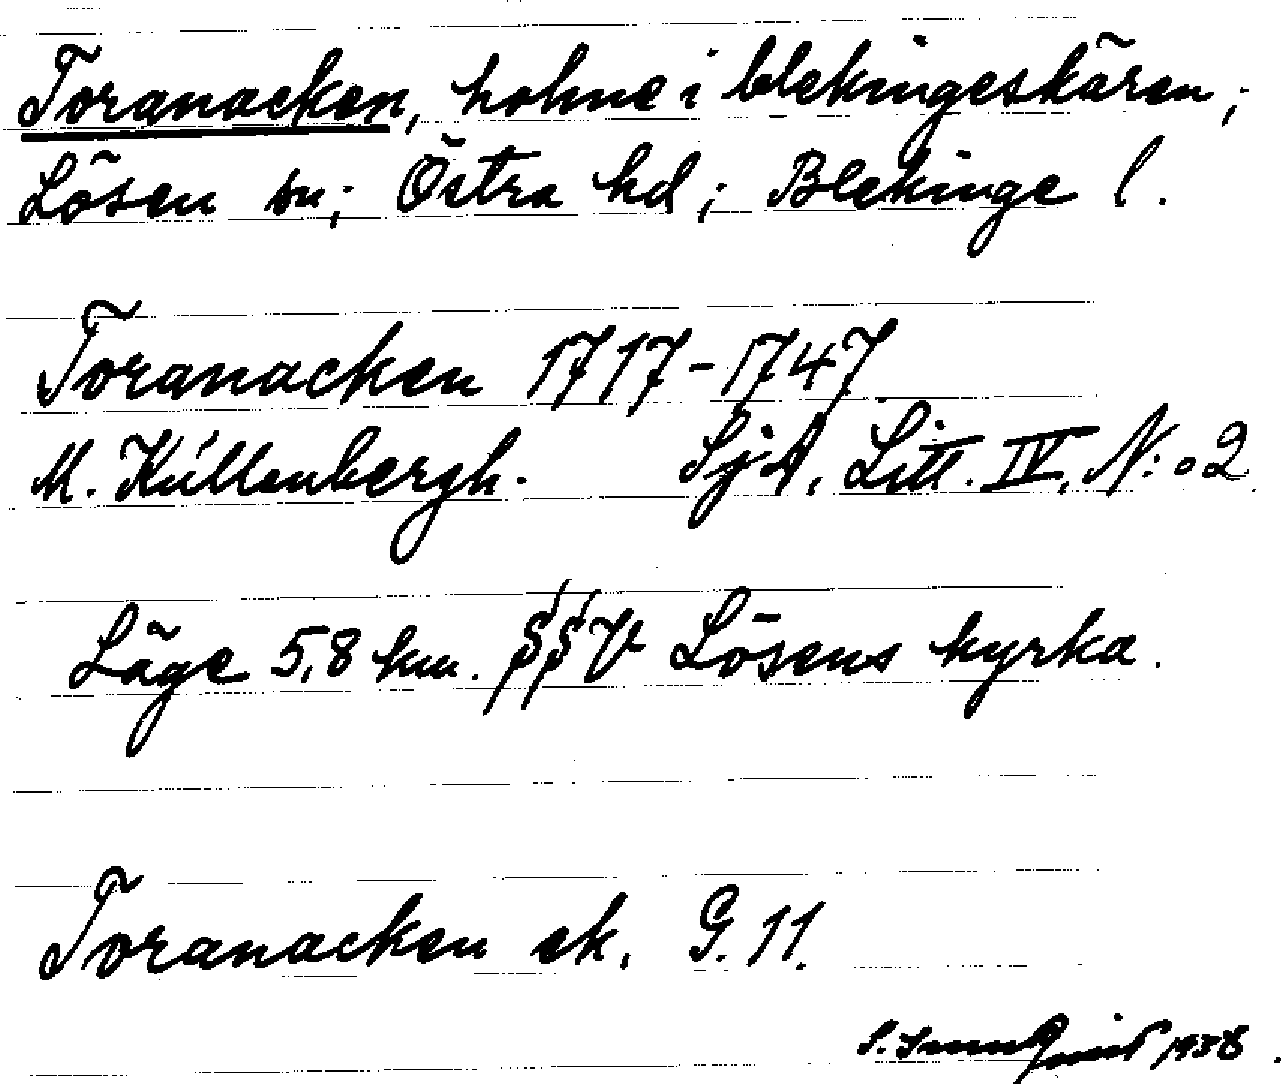 Toranacken, holme i blekingeskären;
Lösen sn; Östra hd; Blekinge l.
Toranacken 1717-1747
M. Küllenbergh. SjA, Litt. IV, N:o 2
Läge 5,8 km. SSV Lösens kyrka.
Toranacken ek. G. 11.
1938.